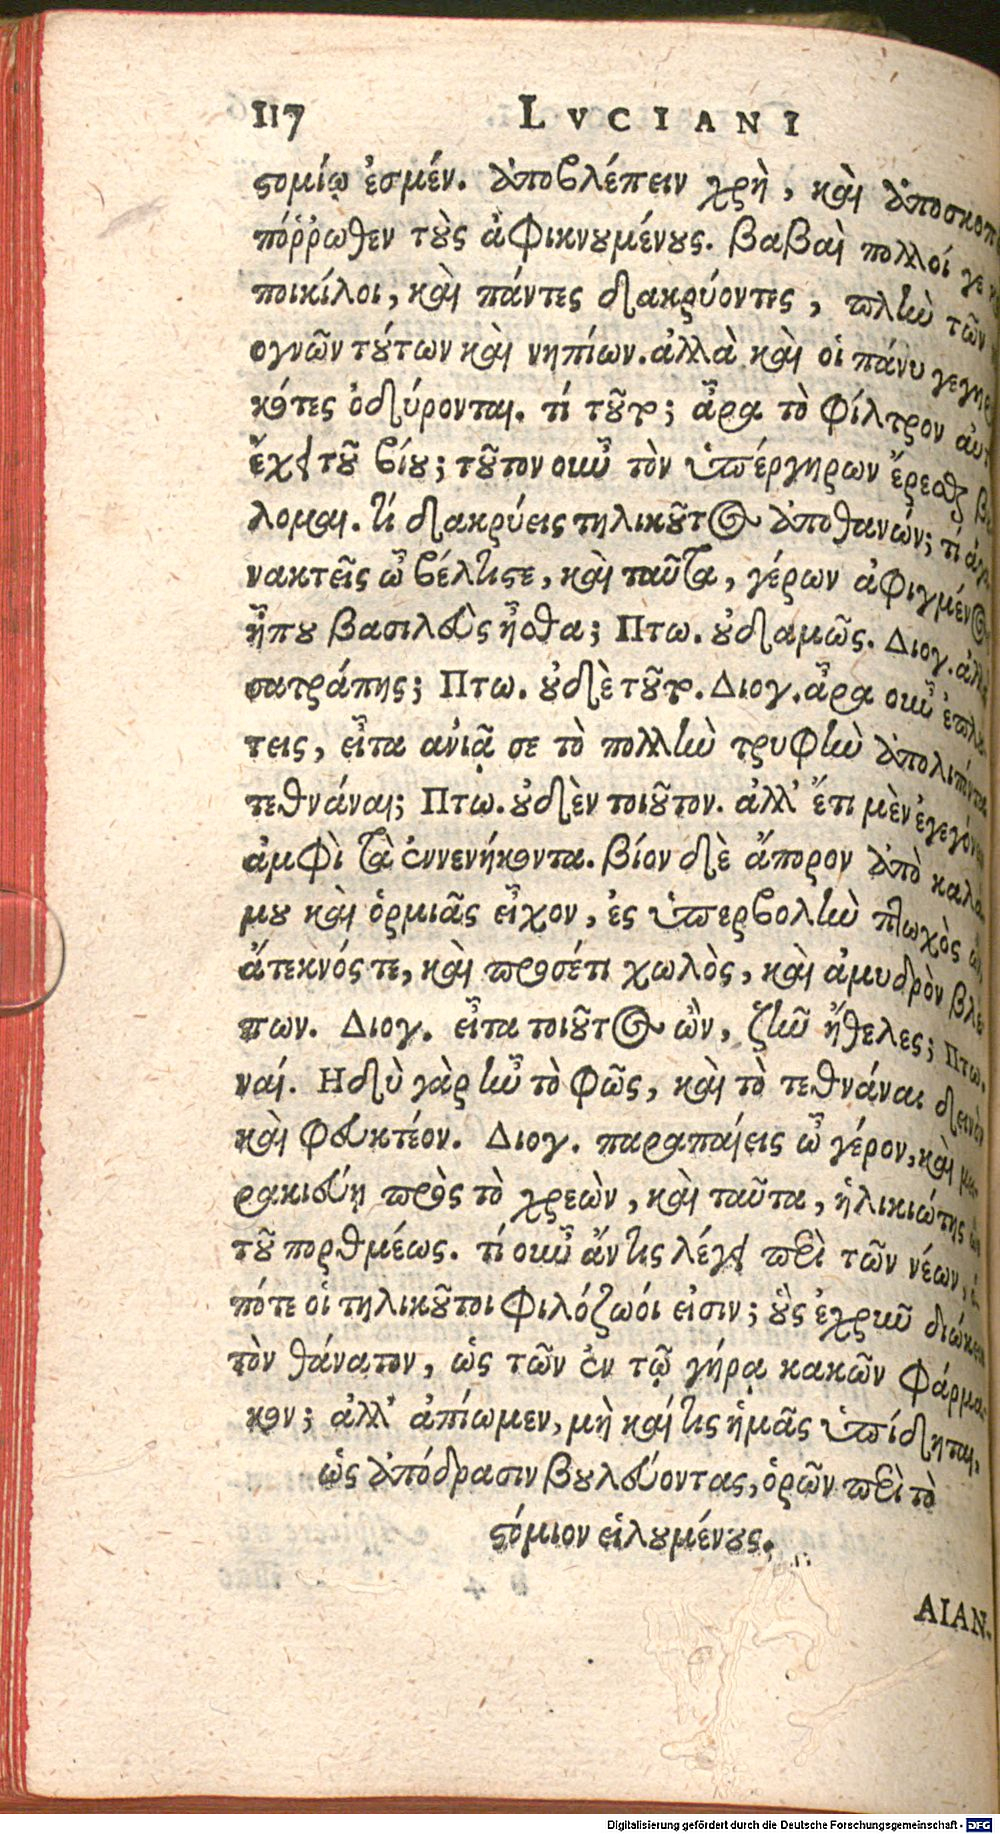 117 LVCIANI
στομίῳ ἐσμέν. ἀποβλέπειν χρὴ, καὶ ἀποσκοπ
πόῤῥωθεν τοὺς ἀφικνουμένους. βαβαὶ πολλοί γε
ποικίλοι, καὶ πάντες δακρύοντες, πλὴν τῶν
ογνῶν τούτων καὶ νηπίων. ἀλλὰ καὶ οἱ πάνυ γεγηρα
κότες ὀδύρονται. τί τοῦτο; ἆρα τὸ φίλτρον αὐτ
ἔχει τοῦ βίου; τοῦτον οὖν τὸν ὑπέργηρων ἔρεσθαι βο
λομαι. τί δακρύεις τηλικοῦτος ἀποθανών; τί ἀγα
νακτεῖς ὦ βέλτιστε, καὶ ταῦτα, γέρων ἀφιγμένος
ἦπου βασιλεὺς ἦσθα; Πτω. οὐδαμῶς. Διογ. ἀλλὰ
σατράπης; Πτω. οὐδὲ τοῦτο. Διογ. ἆρα οὖν ἐπλού
τεις, εἶτα ἀνιᾷ σε τὸ πολλὴν τρυφὴν ἀπολιπόντα
τεθνάναι; Πτω. οὐδὲν τοιοῦτον. ἀλλ' ἔτι μὲν ἐγεγόνειν
ἀμφὶ τὰ ἐννενήκοντα. βίον δὲ ἄπορον ἀπὸ καλά
μου καὶ ὁρμιᾶς εἶχον, ἐς ὑπερβολὴν πτωχὸς ὢν
ἄτεκνός τε, καὶ προσέτι χωλὸς, καὶ ἀμυδρὸν βλέ
πων. Διογ. εἶτα τοιοῦτος ὢν, ζῆν ἤθελες; Πτω.
ναί. Ηδὺ γὰρ ἦν τὸ φῶς, καὶ τὸ τεθνάναι δεινὸν
καὶ φευκτέον. Διογ. παραπαίεις ὦ γέρον, καὶ μει
ρακιεύῃ πρὸς τὸ χρεὼν, καὶ ταῦτα, ἡλικιώτης ὢν
τοῦ πορθμέως. τί οὖν ἄν τις λέγει περὶ τῶν νέων,
πότε οἱ τηλικοῦτοι φιλόζωοί εἰσιν; οὓς ἐχρῆν διώκειν
τὸν θάνατον, ὡς τῶν ἐν τῷ γήρᾳ κακῶν φάρμα-
κον; ἀλλ' ἀπίωμεν, μὴ καί τις ἡμᾶς ὑπίδηται,
ὡς ἀπόδρασιν βουλεύοντας, ὁρῶν περὶ τὸ
στόμιον εἱλουμένους.
ΑΙΑΝ-
Digitalisierung gefördert durch die Deutsche Forschungsgemeinschaft - DFG